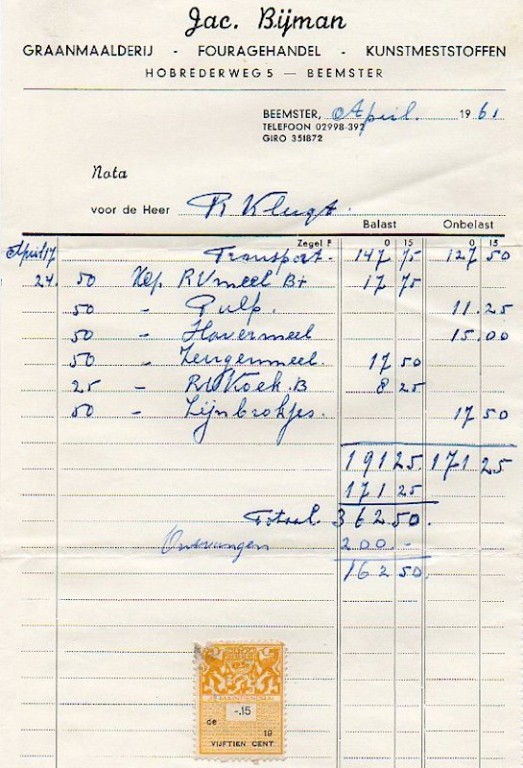 Jac. Bijman
GRAANMAALDERIJ - FOURAGEHANDEL - KUNSTMESTSTOFFEN
HOBREDERWEG 5 — BEEMSTER
BEEMSTER, April. 1961
TELEFOON 02998-392
GIRO 351872
Nota
voor de Heer R Klugt.
Balast Onbelast
Zegel F 0 15 0 15
April 17 Transport. 147 75 127 50
24. 50 Kg. RVmeel B+ 17 75
50 - Pulp. 11.25
50 - Havermeel 15.00
50 - Zeugenmeel. 17 50
25 - Koek. B 8 25
50 - Lijnbrokjes. 17 50
191 25. 171 25
171 25
Totaal. 362.50.
Ontvangen 200.-
162 50.
-.15
de 19
VIJFTIEN CENT